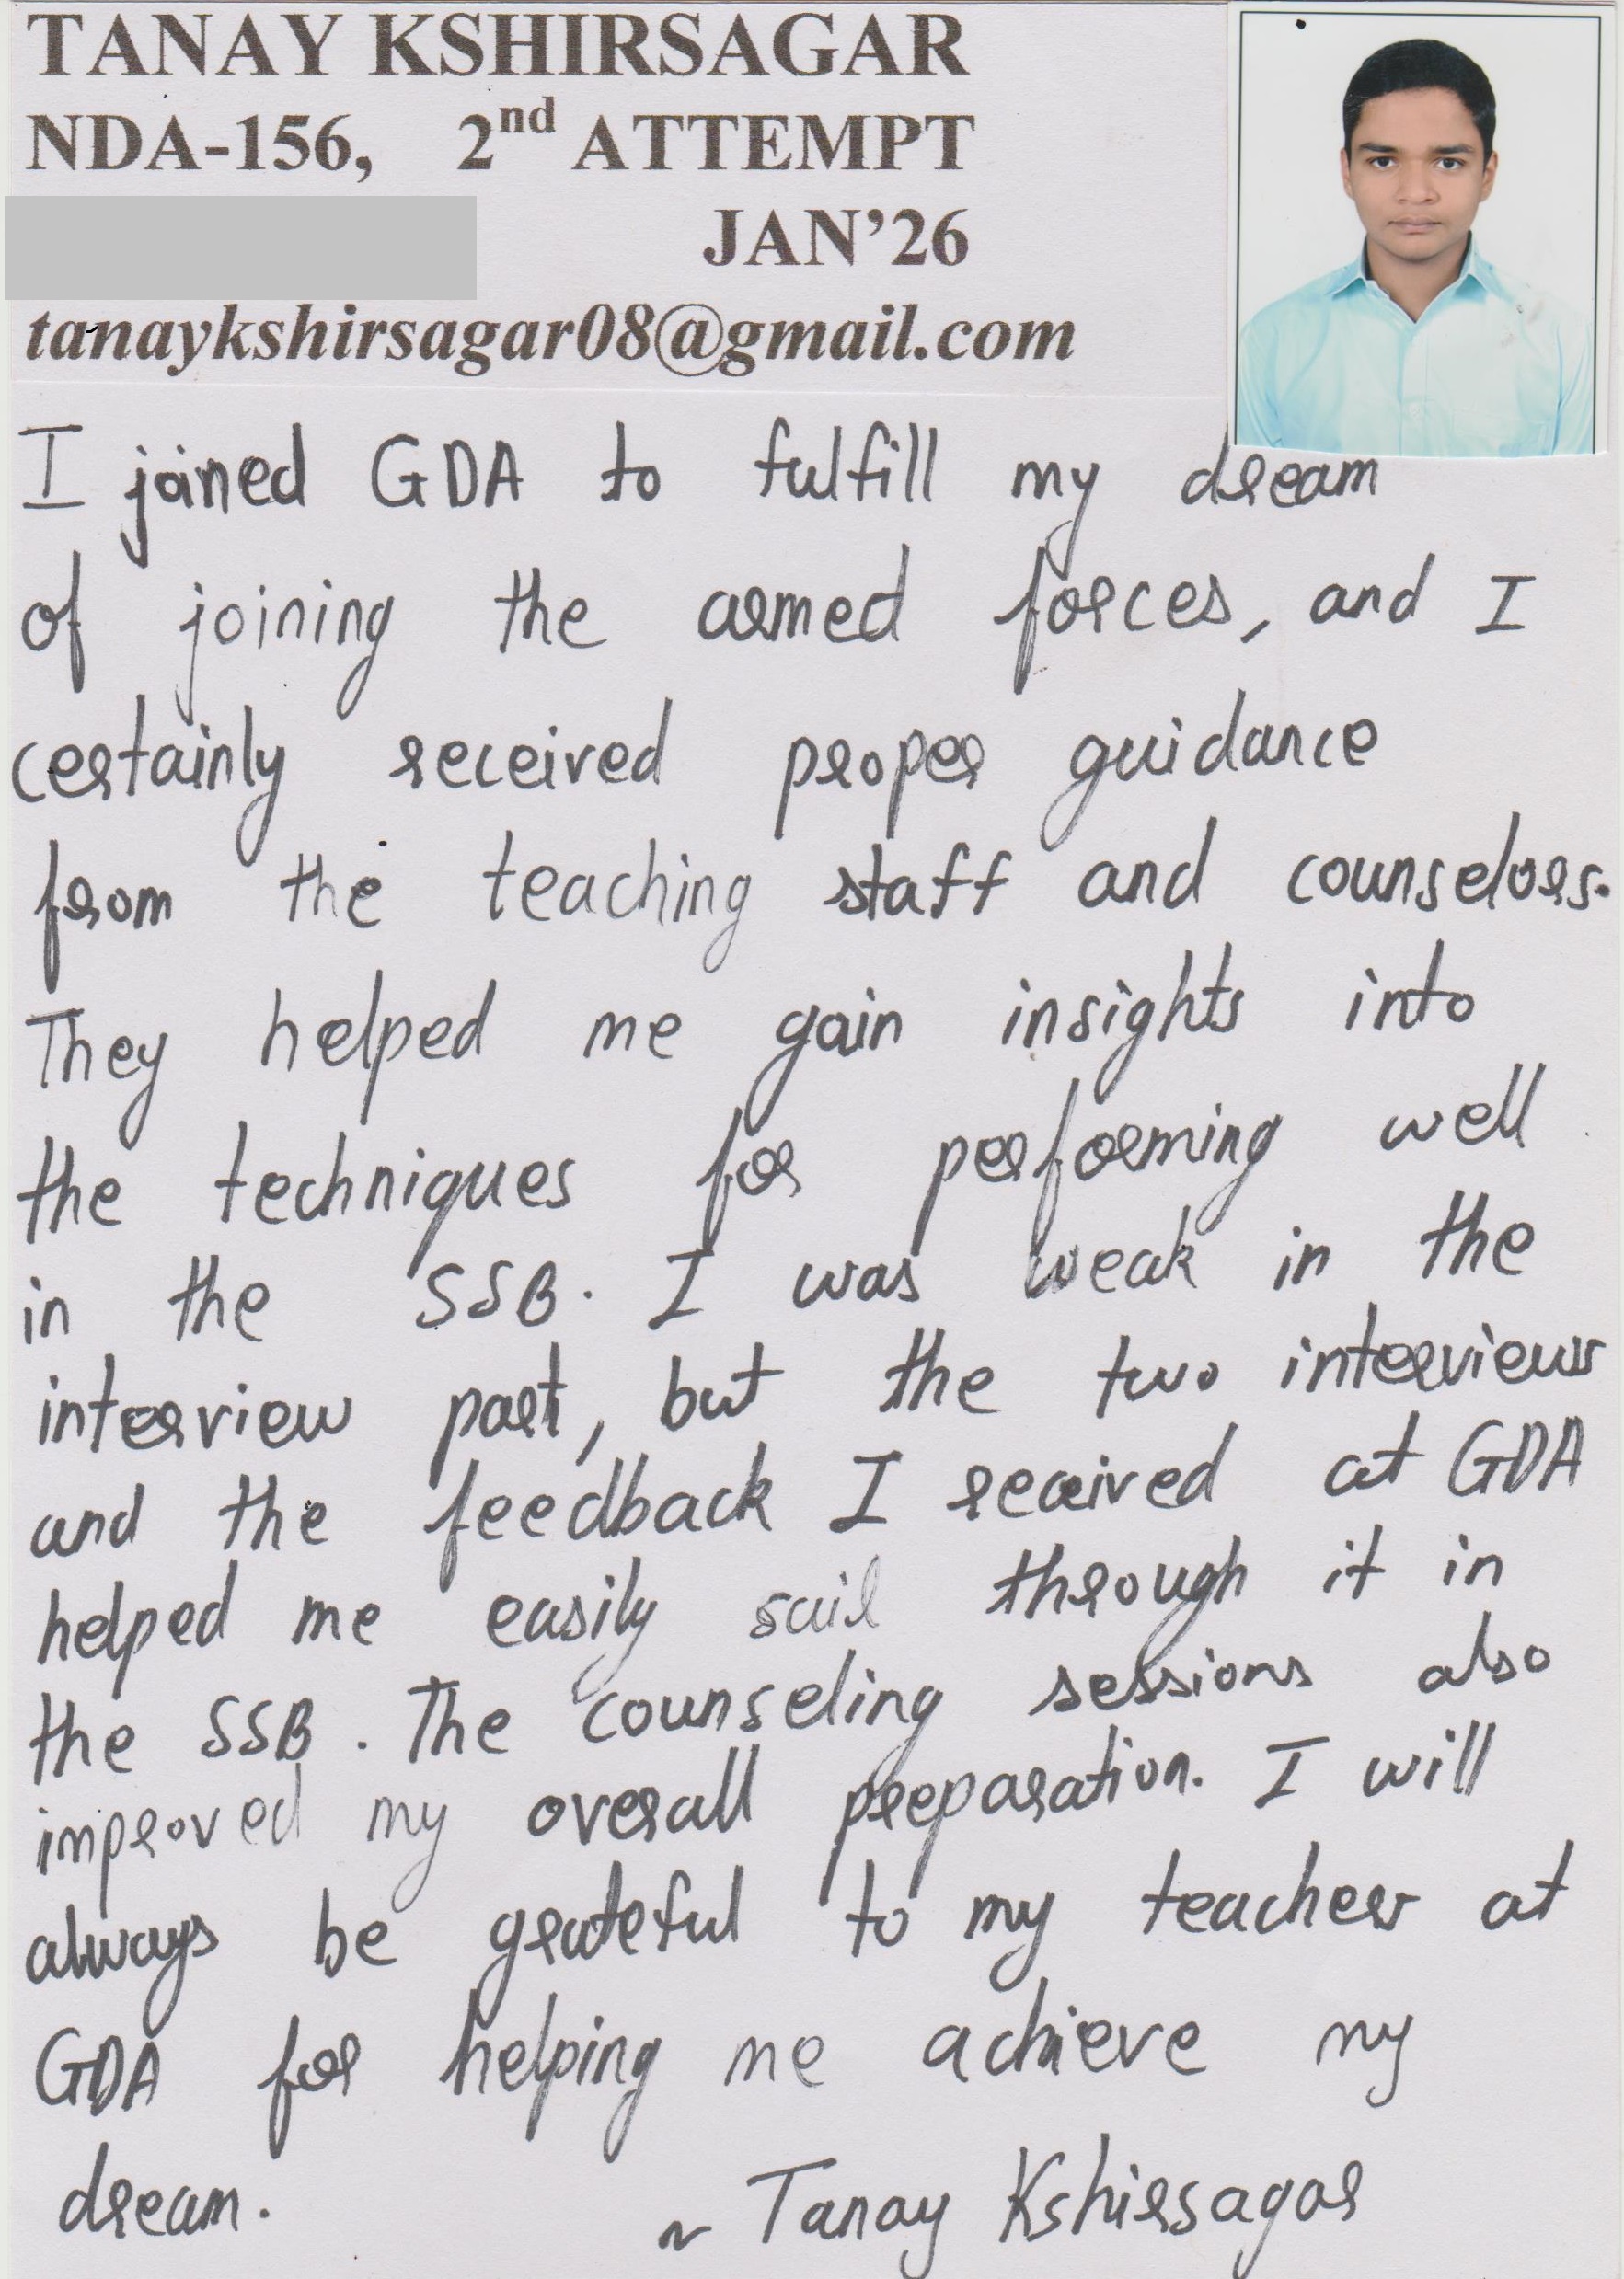 TANAY KSHIRSAGAR
NDA-156, 2nd ATTEMPT
JAN'26
tanaykshirsagar08@gmail.com
I joined GDA to fulfill my dream
of joining the armed forces, and I
certainly received proper guidance
from the teaching staff and counselors.
They helped me gain insights into
the techniques for performing well
in the SSB. I was weak in the
interview part, but the two interviews
and the feedback I received at GDA
helped me easily sail through it in
the SSB. The counseling sessions also
improved my overall preparation. I will
always be grateful to my teachers at
GDA for helping me achieve my
dream.
~ Tanay Kshirsagar